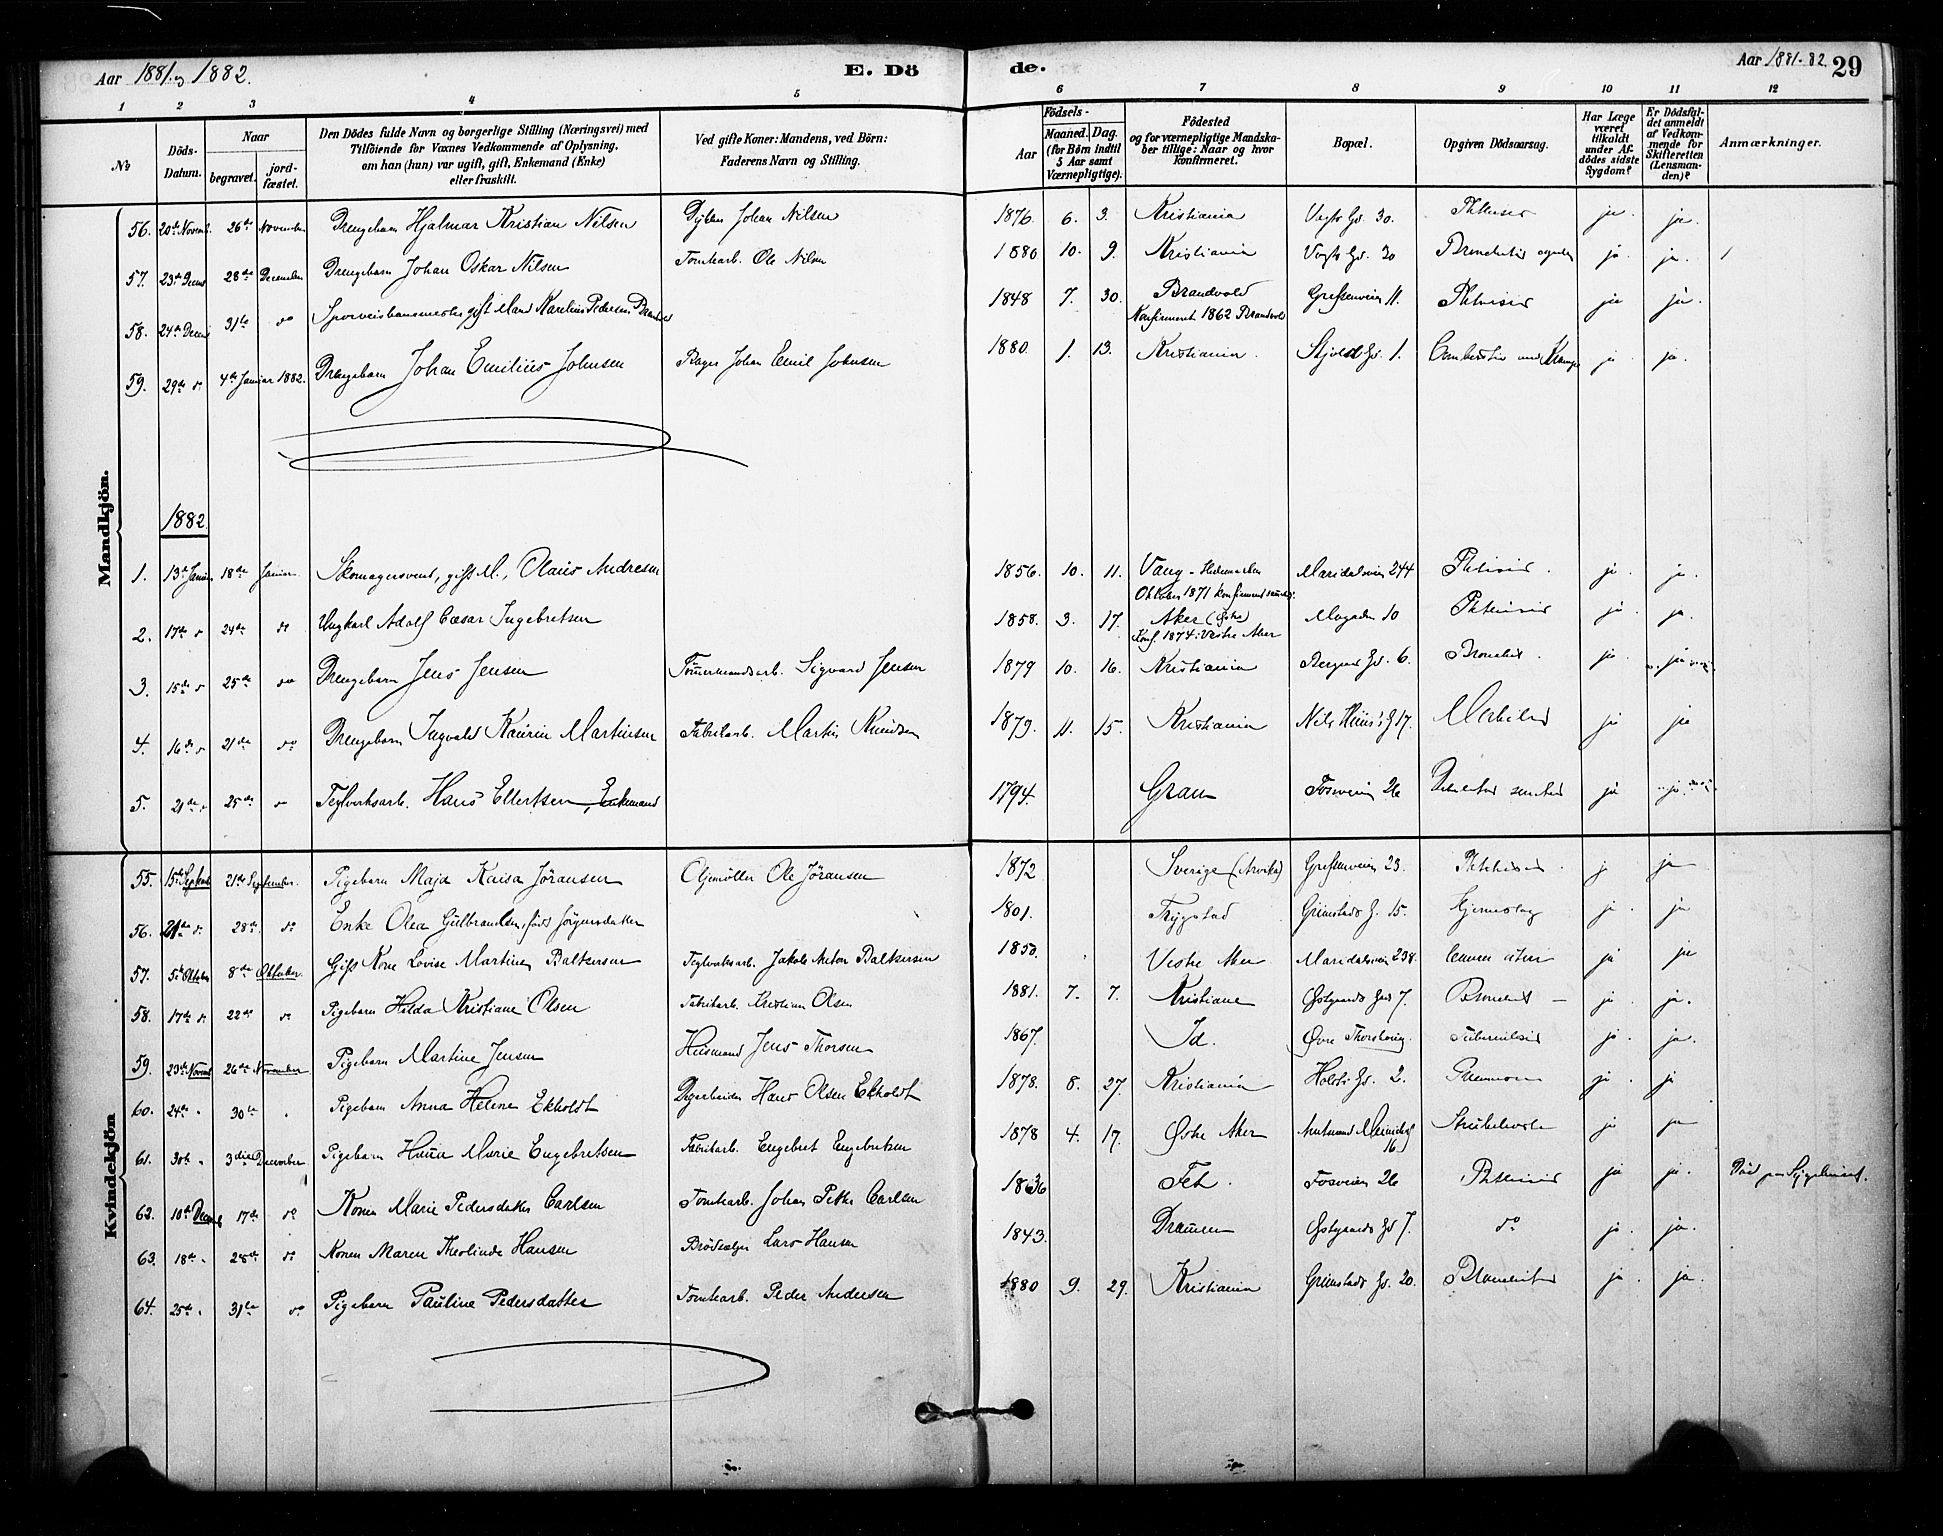 Aar 1881 og 1882.
E. Dö
de.
Aar 1881-82. 29
1 2 3 4 5 6 7 8 9 10 11 12
No
Döds-Datum.
Naar
begravet.
jord-fæstet.
Den Dödes fulde Navn og borgerlige Stilling (Næringsvei) med
Tilföiende for Voxnes Vedkommende af Oplysning,
om han (hun) var ugift, gift, Enkemand (Enke)
eller fraskilt.
Ved gifte Koner: Mandens, ved Börn:
Faderens Navn og Stilling.
Födsels-
Aar
Maaned. Dag.
(for Börn indtil
5 Aar samt
Værnepligtige).
Födested
og for værnepligtige Mandska-
ber tillige: Naar og hvor
konfirmeret.
Bopæl.
Opgiven Dödsaarsag.
Har Læge
været
tilkaldt
under Af-
dödes sidste
Sygdom?
Er Dödsfal-
det anmeldt
af Vedkom-
mende for
Skifteretten
(Lensman-
den)?
Anmærkninger.
Mandkjön.
56. 20de Novemb. 26de November Drengebarn Hjalmar Kristian Nilsen Johan Nilsen 1876 6. 3. Kristiania Vogts Gd. 30. Phthisis ja. ja.
57. 23de Decemb 28de December Drengebarn Johan Oskar Nilsen Tomtearb. Ole Nilsen 1880 10. 9. Kristiania Vogts Gd. 30 Bronchitis ja. ja.
58. 24de Decemb 31te do Sporveisbanemester gift Mand Karelius Pedersen 1848 7. 30. Brandvold Grefsenveien 11. Phthisis ja ja.
Konfirmeret 1862 Brandvold
59. 29de do 4de Januar 1882. Drengebarn Johan Emilius Johnsen Bager Johan Emil Johnsen 1880 1. 13. Kristiania. Skjolds Gd. 1. Combustio med Krampe ja ja.
1882.
1. 13de Januar 18de Januar. Skomagersvend, gift M., Olaus Andresen 1856. 10. 11. Vang - Hedemarken Maridalsveien 244 Phthisis. ja. ja.
Oktober 1871 konfirmeret
2. 17de do 24de do Ungkarl Adolf Cæsar Ingebretsen 1858. 3. 17. Aker (Østre) 10 Phthisis ja. ja.
Konf. 1874: Vestre Aker
3. 15de do 25de do Drengebarn Jens Jensen Tömmermandsarb. Sigvard Jensen 1879 10. 16. Kristiania Bergens Gd. 6. Bronchit. ja. ja
4. 16de do 21de do Drengebarn Ingvald Kaurin Martinsen Fabrikarb. Martin Knudsen 1879. 11. 15. Kristiania Nils Huus' G 17. Morbilli ja ja
5. 21de do 25de do Teglverksarb. Hans Ellertsen, Enkemand 1794. Gran Fosveien 26 ja ja
Kvindekjön
55. 15de Septemb 21de September. Pigebarn Maja Kaisa Jöransen Oljemöller Ole Jöransen 1872 Sverige (Arvika) Grefsenveien 23. Phthisis. ja ja
56. 21de do 28de do Enke Olea Gulbrandsen, född Jörgensdatter 1801. Trygstad Grimstads G. 15. Hjerneslag ja. ja
57. 5te Oktober 8de Oktober. Gift Kone Lovise Martinea Baltzersen Teglverksarb. Jakob Anton Baltzersen 1850. Vestre Aker Maridalsveien 238. Cancer uteri ja ja
58. 17de do 22de do Pigebarn Hilda Kristiane Olsen Fabrikarb. Kristian Olsen 1881. 7. 7. Kristiania Østgaards Gd 7. Bronchit — ja. ja.
59. 23de Novemb 26de November Pigebarn Martine Jensen Husmand Jens Thorsen 1867. Id. Øvre Thorshaug. Tuberculosis ja. ja.
60. 24de " 30te " Pigebarn Anna Helene Ekholdt Hans Olsen Ekholdt 1878. 8. 27. Kristiania Holsts Gd. 2. Pneumoni ja. ja
61. 30te " 3die December Pigebarn Hanna Marie Engebretsen Fabrikarb. Engebret Engebretsen 1878 4. 17. Østre Aker Amtmand Meinichs G 16 Strubehoste ja ja
62. 10de Decemb 17de do Konen Marie Pedersdatter Carlsen Tomtearb. Johan Petter Carlsen 1836 Fet. Fosveien 26 Phthisis ja ja. Död paa Sygehuset.
63. 18de " 28de do Konen Maren Theolinde Hansen Brödsælger Lars Hansen 1843. Drammen Østgaards Gd 7. do ja. ja.
64. 25de " 31te do Pigebarn Pauline Pedersdatter Tomtearb. Peder Andersen 1880 9. 29. Kristiania Grimstads Gd. 20. Bronchitis ja. ja.